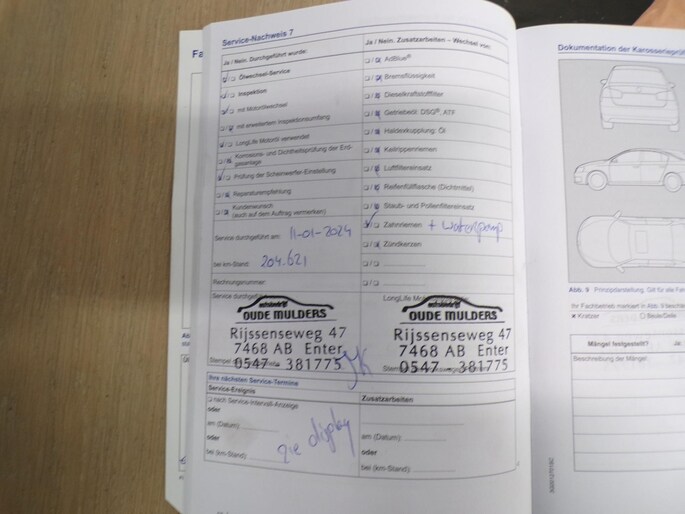 Service-Nachweis 7
Ja / Nein. Durchgeführt wurde:
Ölwechsel-Service
Inspektion
mit Motorölwechsel
mit erweitertem Inspektionsumfang
LongLife Motoröl verwendet
Korrosions- und Dichtheitsprüfung der Erd-
gasanlage
Prüfung der Scheinwerfer-Einstellung
Reparaturempfehlung
Kundenwunsch
(auch auf dem Auftrag vermerken)
Service durchgeführt am: 11-01-2024
bei km-Stand: 204.621
Rechnungsnummer:
Service durchgeführt
autobedrijf
OUDE MULDERS
Rijssenseweg 47
7468 AB Enter
0547 - 381775
Stempel
Ja / Nein. Zusatzarbeiten – Wechsel von:
AdBlue®
Bremsflüssigkeit
Dieselkraftstofffilter
Getriebeöl: DSG®, ATF
Haldexkupplung: Öl
Keilrippenriemen
Luftfiltereinsatz
Reifenfüllflasche (Dichtmittel)
Staub- und Pollenfiltereinsatz
Zahnriemen + waterpomp
Zündkerzen
LongLife Mot
autobedrijf
OUDE MULDERS
Rijssenseweg 47
7468 AB Enter
0547 - 381775
Ihre nächsten Service-Termine
Service-Ereignis
nach Service-Intervall-Anzeige
oder
am (Datum):
oder
bei (km-Stand):
zie display
Zusatzarbeiten
am (Datum):
oder
bei (km-Stand):
Dokumentation der Karosserieprü
Abb. 9 Prinzipdarstellung, Gilt für alle Fa
Ihr Fachbetrieb markiert in Abb. 9 festgest
Kratzer
Beule/Delle
Mängel festgestellt? Ja:
Beschreibung der Mängel: